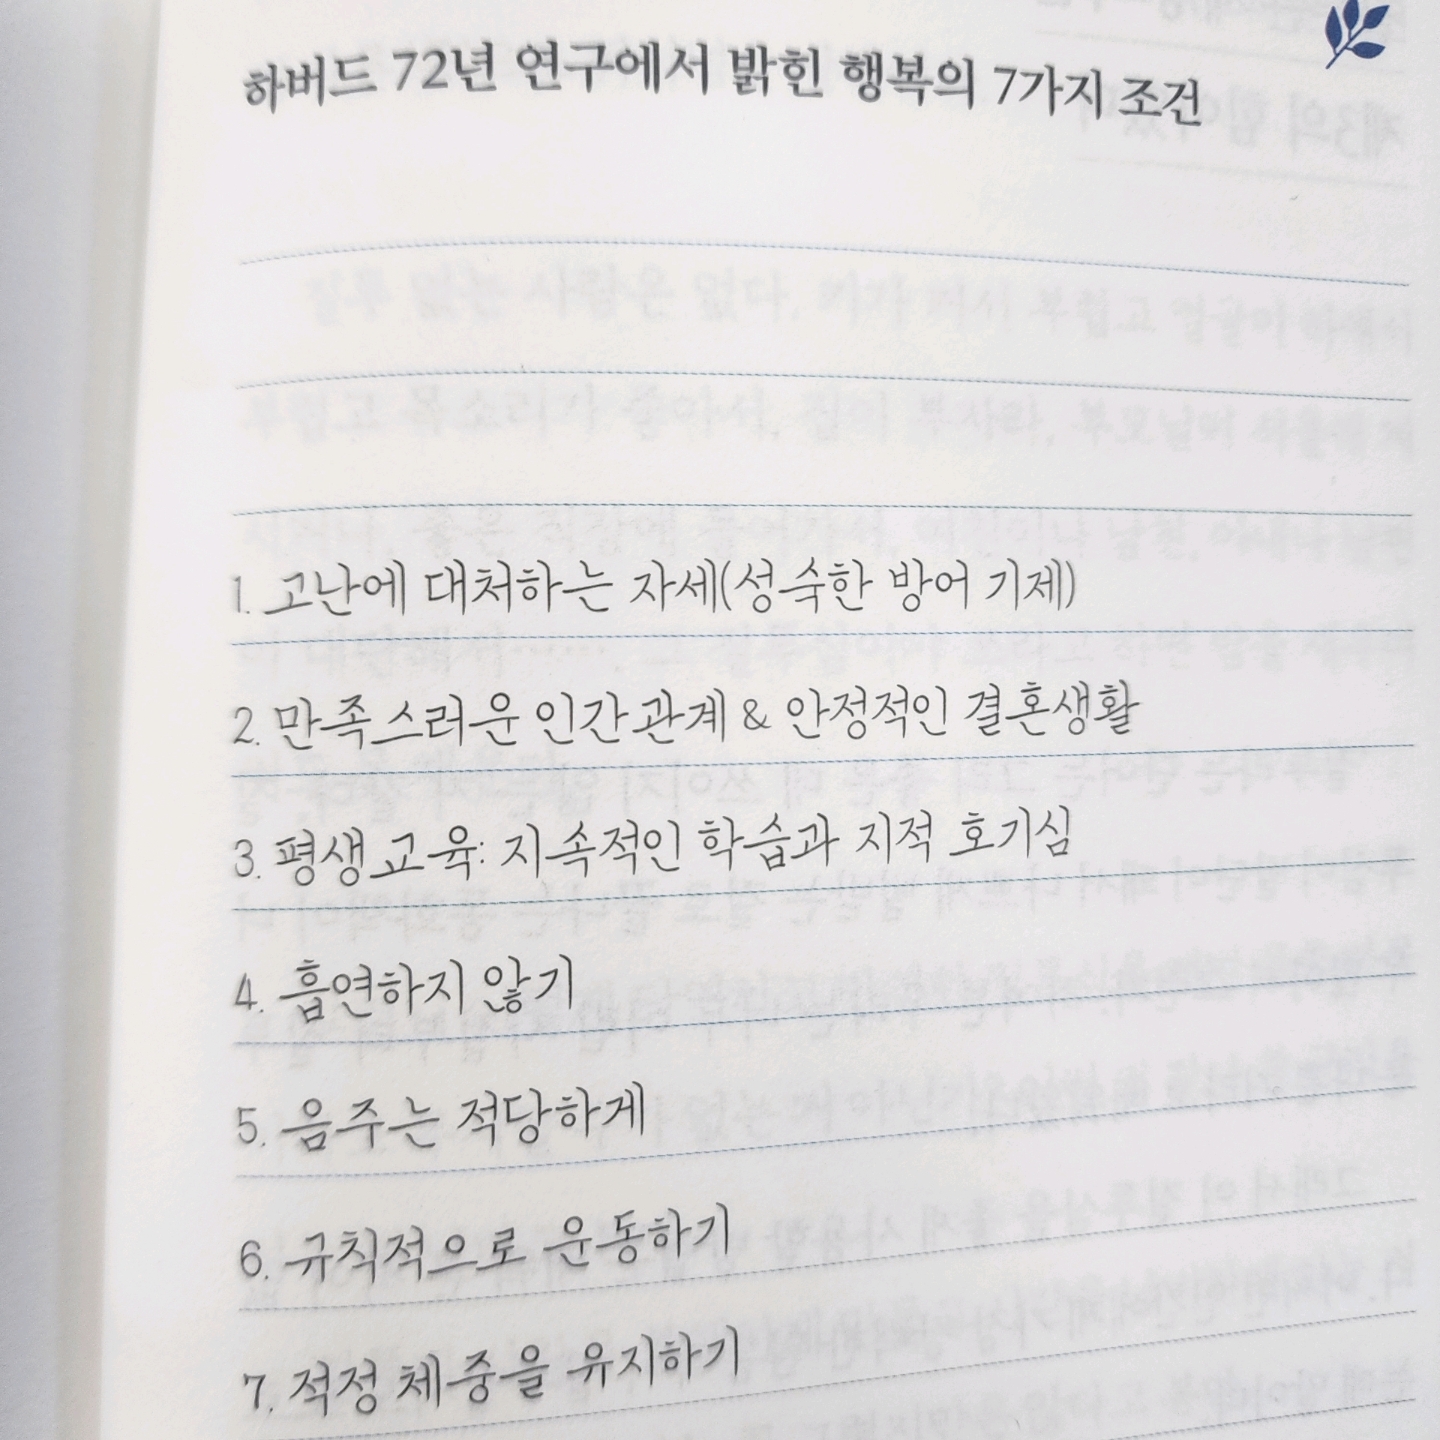 하버드 72년 연구에서 밝힌 행복의 7가지 조건
1. 고난에 대처하는 자세(성숙한 방어 기제)
2. 만족스러운 인간관계 & 안정적인 결혼생활
3. 평생교육: 지속적인 학습과 지적 호기심
4. 흡연하지 않기
5. 음주는 적당하게
6. 규칙적으로 운동하기
7. 적정 체중을 유지하기